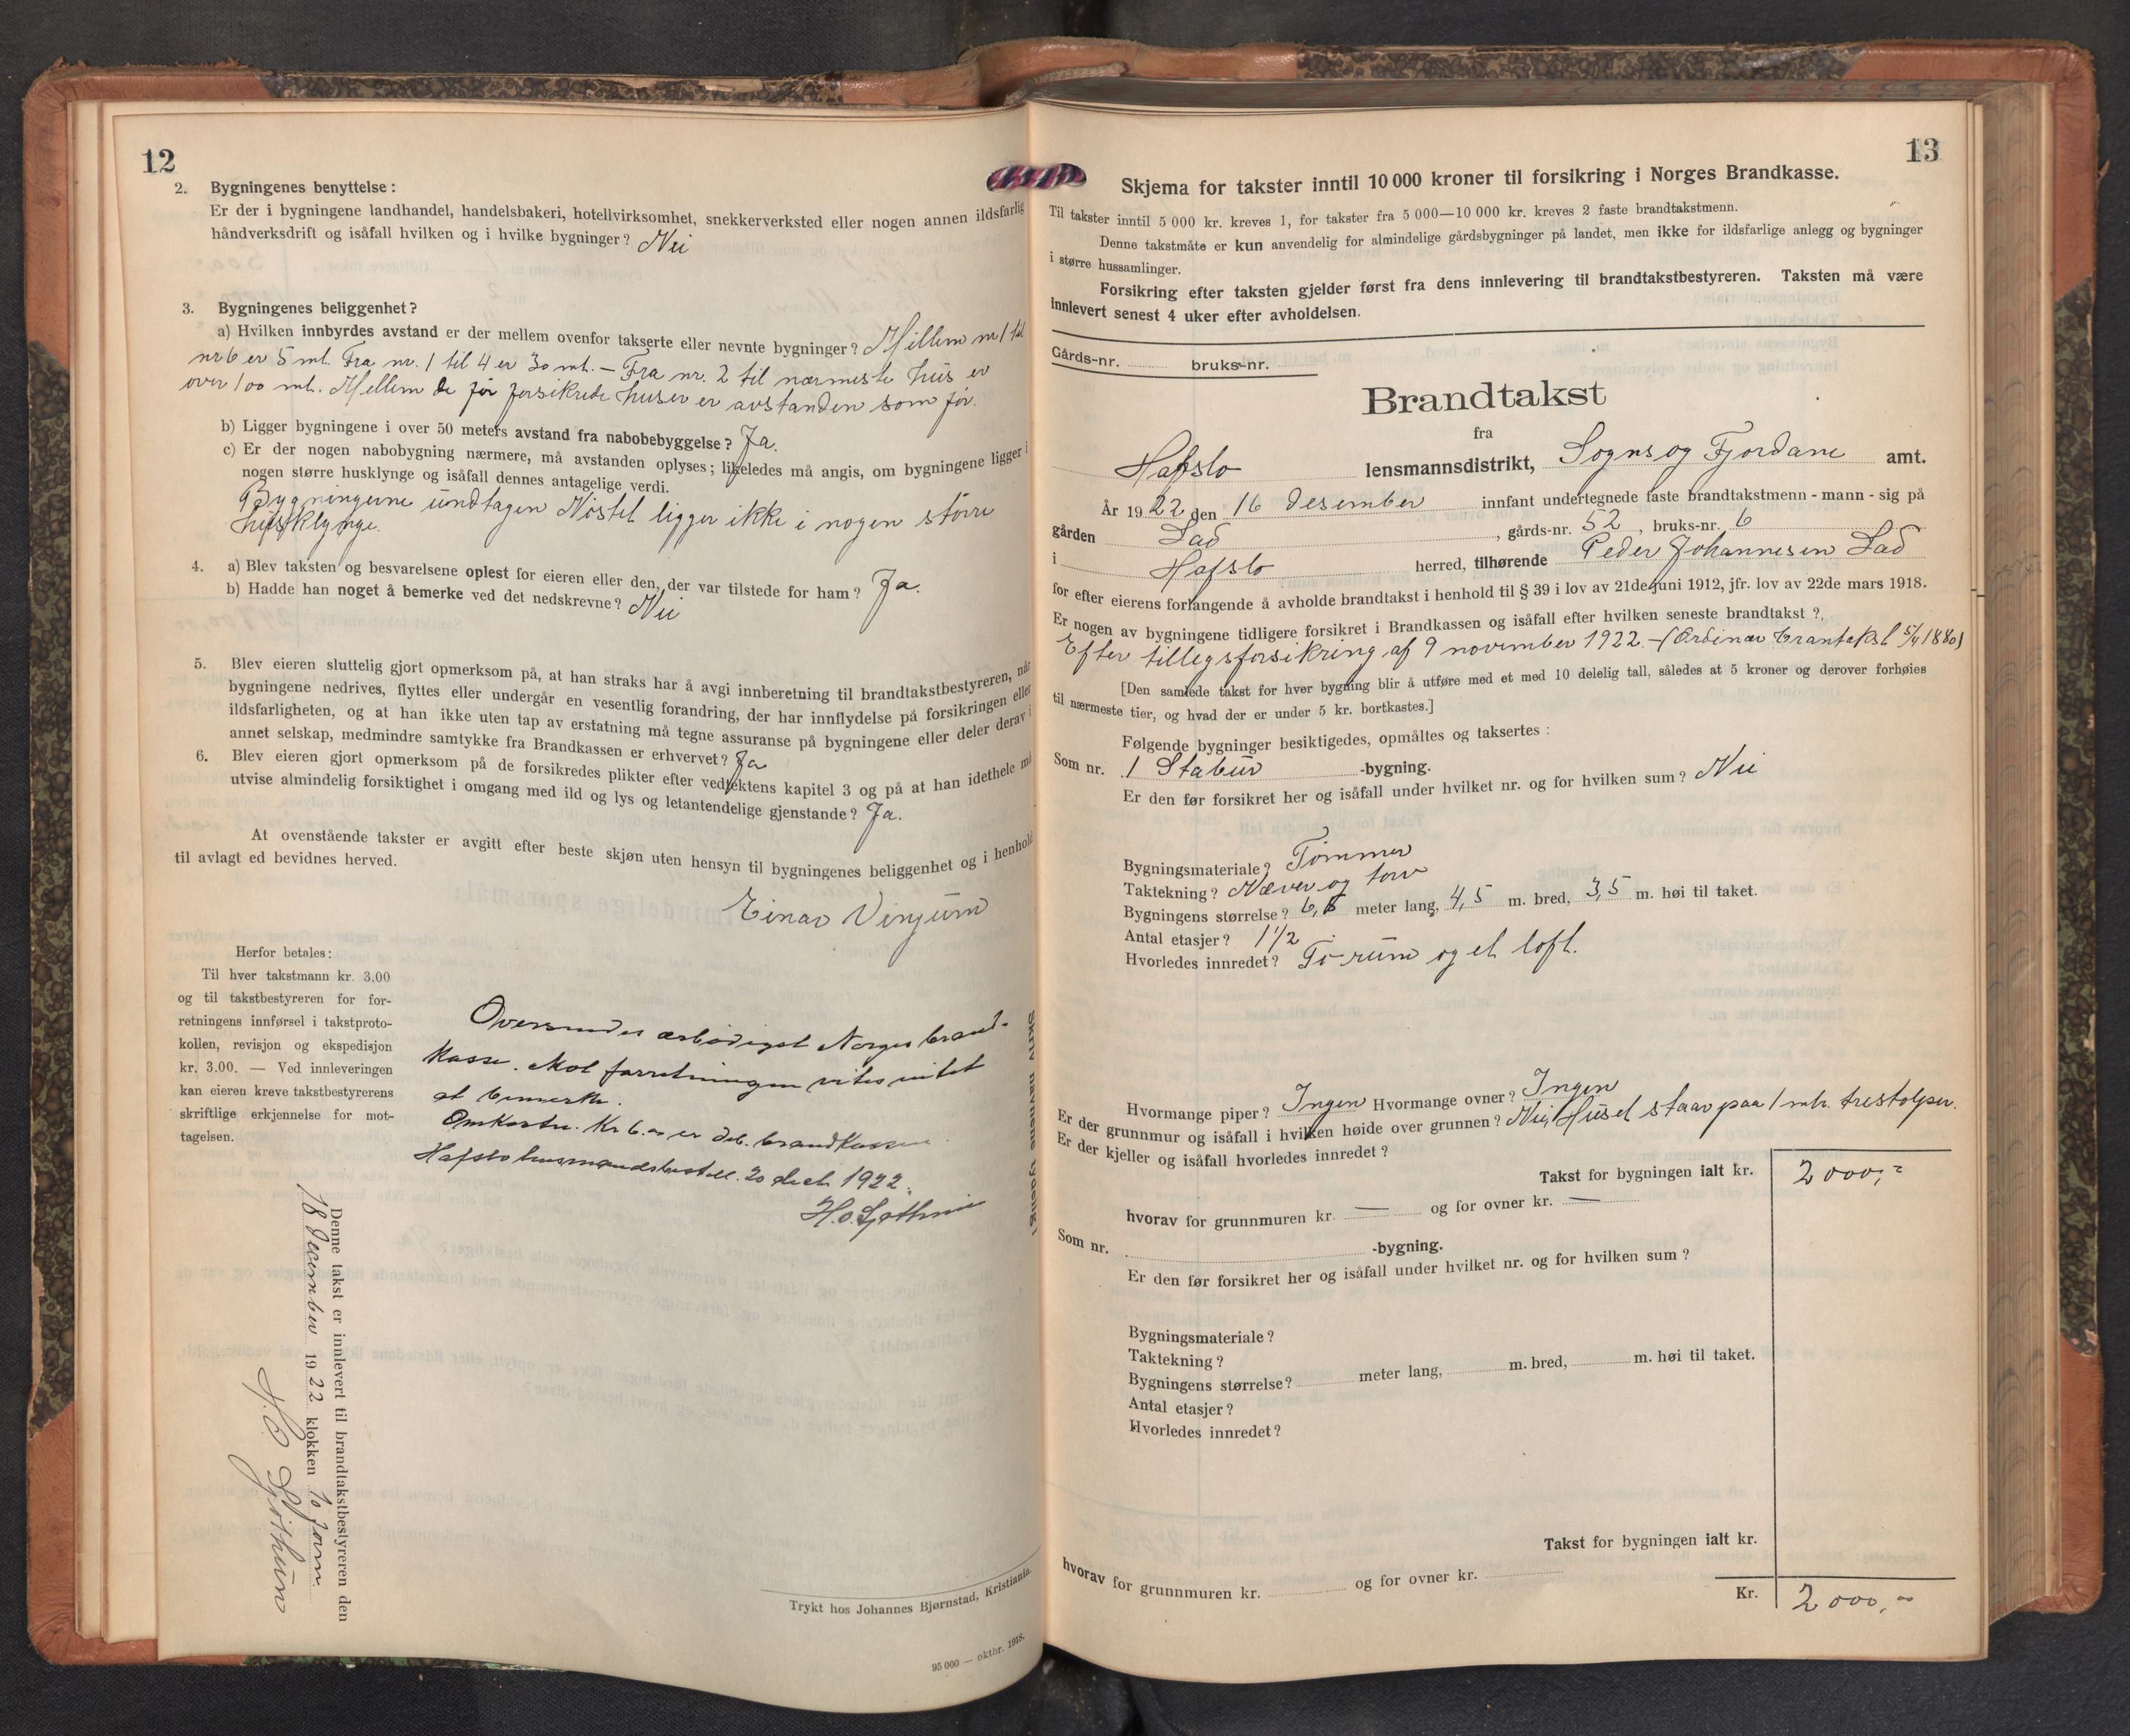 12
2. Bygningenes benyttelse:
Er der i bygningene landhandel, handelsbakeri, hotellvirksomhet, snekkerverksted eller nogen annen ildsfarlig
håndverksdrift og isåfall hvilken og i hvilke bygninger? Nei
3. Bygningenes beliggenhet?
a) Hvilken innbyrdes avstand er der mellem ovenfor takserte eller nevnte bygninger? Millem nr 1 til
nr 6 er 5 mt. Fra nr. 1 til 4 er 30 mt. – Fra nr. 2 til nærmeste hus er
over 100 mt. Mellem de før forsikrede huser er avstanden som før.
b) Ligger bygningene i over 50 meters avstand fra nabobebyggelse? Ja.
c) Er der nogen nabobygning nærmere, må avstanden oplyses; likeledes må angis, om bygningene ligger i
nogen større husklynge og isåfall dennes antagelige verdi.
Bygningerne undtagen Nøstet ligger ikke i nogen større
husklynge.
4. a) Blev taksten og besvarelsene oplest for eieren eller den, der var tilstede for ham? Ja.
b) Hadde han noget å bemerke ved det nedskrevne? Nei
5. Blev eieren sluttelig gjort opmerksom på, at han straks har å avgi innberetning til brandtakstbestyreren, når
bygningene nedrives, flyttes eller undergår en vesentlig forandring, der har innflydelse på forsikringen eller
ildsfarligheten, og at han ikke uten tap av erstatning må tegne assuranse på bygningene eller deler derav i
annet selskap, medmindre samtykke fra Brandkassen er erhvervet? Ja
6. Blev eieren gjort opmerksom på de forsikredes plikter efter vedtektens kapitel 3 og på at han idethele må
utvise almindelig forsiktighet i omgang med ild og lys og letantendelige gjenstande? Ja.
At ovenstående takster er avgitt efter beste skjøn uten hensyn til bygningenes beliggenhet og i henhold
til avlagt ed bevidnes herved.
Einar Vinjum
Herfor betales:
Til hver takstmann kr. 3,00
og til takstbestyreren for for-
retningens innførsel i takstproto-
kollen, revisjon og ekspedisjon
kr. 3.00. — Ved innleveringen
kan eieren kreve takstbestyrerens
skriftlige erkjennelse for mot-
tagelsen.
Oversendes ærbødigst Norges brand-
kasse. Mot forretningen vites intet
at bemerke.
Omkostn. Kr 6.00 er deb. brandkassen.
Hafslo lensmandsbestill. 20 decb 1922.
H. O. Sjøthun
Denne takst er innlevert til brandtakstbestyreren den
18 December 1922 klokken 10 form.
H. O. Sjøthun
Skriv navnene tydelig!
Trykt hos Johannes Bjørnstad, Kristiania.
95 000 — oktbr. 1918.
13
Skjema for takster inntil 10 000 kroner til forsikring i Norges Brandkasse.
Til takster inntil 5 000 kr. kreves 1, for takster fra 5 000—10 000 kr. kreves 2 faste brandtakstmenn.
Denne takstmåte er kun anvendelig for almindelige gårdsbygninger på landet, men ikke for ildsfarlige anlegg og bygninger
i større hussamlinger.
Forsikring efter taksten gjelder først fra dens innlevering til brandtakstbestyreren. Taksten må være
innlevert senest 4 uker efter avholdelsen.
Gårds-nr. bruks-nr.
Brandtakst
fra
Hafslo lensmannsdistrikt, Sogns og Fjordane amt.
År 1922 den 16 desember innfant undertegnede faste brandtakstmenn - mann - sig på
gården Lad, gårds-nr. 52, bruks-nr. 6
i Hafslo herred, tilhørende Peder Johannesen Lad
for efter eierens forlangende å avholde brandtakst i henhold til § 39 i lov av 21de juni 1912, jfr. lov av 22de mars 1918.
Er nogen av bygningene tidligere forsikret i Brandkassen og isåfall efter hvilken seneste brandtakst?
Efter tillegsforsikring af 9 november 1922 – (Ordinær brantakst 5/4 1880)
[Den samlede takst for hver bygning blir å utføre med et med 10 delelig tall, således at 5 kroner og derover forhøies
til nærmeste tier, og hvad der er under 5 kr. bortkastes.]
Følgende bygninger besiktigedes, opmåltes og taksertes:
Som nr. 1 Stabur -bygning.
Er den før forsikret her og isåfall under hvilket nr. og for hvilken sum? Nei
Bygningsmateriale? Tømmer
Taktekning? Næver og torv
Bygningens størrelse? 6,5 meter lang, 4,5 m. bred, 3,5 m. høi til taket.
Antal etasjer? 1 1/2
Hvorledes innredet? To rum og et loft.
Hvormange piper? Ingen Hvormange ovner? Ingen
Er der grunnmur og isåfall i hvilken høide over grunnen? Nei, Huset staar paa 1 mtr. trestolper.
Er der kjeller og isåfall hvorledes innredet?
Takst for bygningen ialt kr. 2000,-
hvorav for grunnmuren kr. — og for ovner kr. —
Som nr. -bygning.
Er den før forsikret her og isåfall under hvilket nr. og for hvilken sum?
Bygningsmateriale?
Taktekning?
Bygningens størrelse? meter lang, m. bred, m. høi til taket.
Antal etasjer?
Hvorledes innredet?
Takst for bygningen ialt kr.
hvorav for grunnmuren kr. og for ovner kr.
Kr. 2000,-